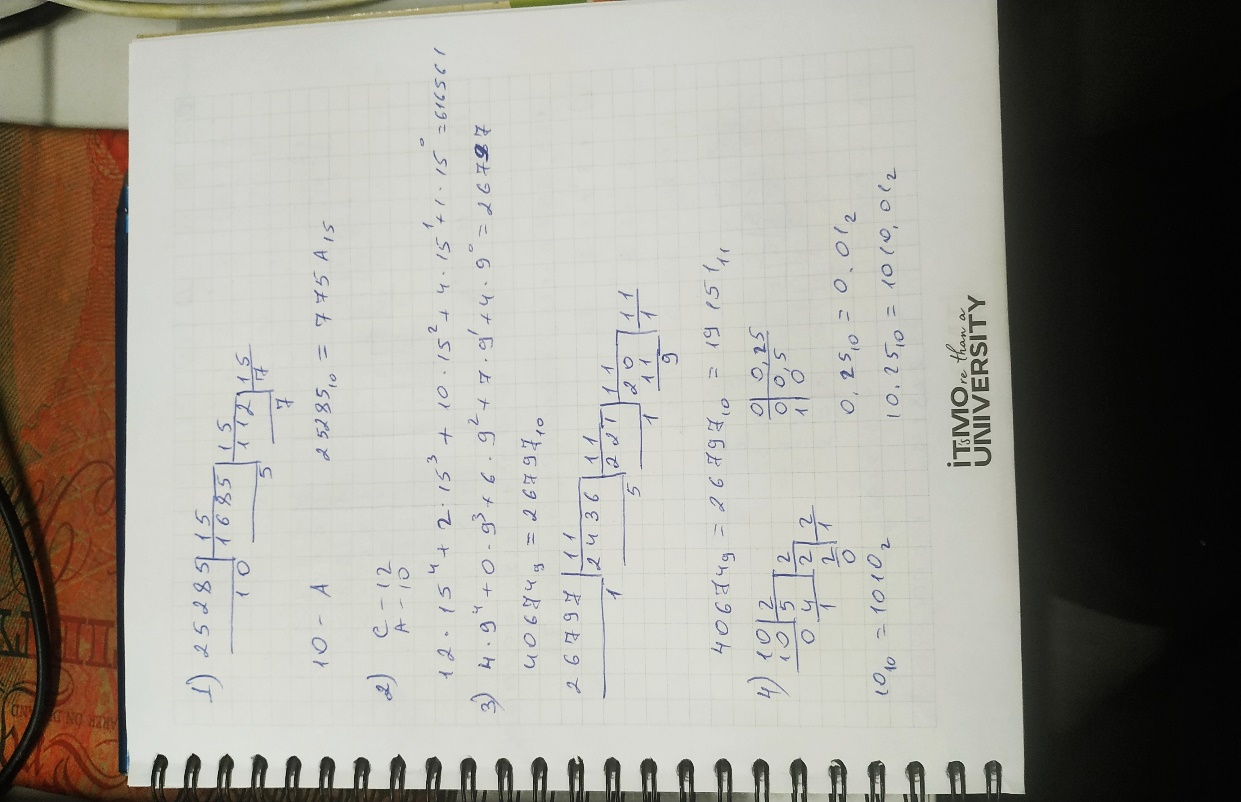 1) 25285 | 15
10 | 1685 | 15
5 | 112 | 15
7 | 7
10 - A 25285₁₀ = 775A₁₅
2) C - 12
A - 10
12 · 15⁴ + 2 · 15³ + 10 · 15² + 4 · 15¹ + 1 · 15⁰ = 616561
3) 4 · 9⁴ + 0 · 9³ + 6 · 9² + 7 · 9¹ + 4 · 9⁰ = 26797
40674₉ = 26797₁₀
26797 | 11
1 | 2436 | 11
5 | 221 | 11
1 | 20 | 11
11 | 1
9
40674₉ = 26797₁₀ = 19151₁₁
4) 10 | 2 0 | 0,25
10 | 5 | 2 0 | 0,5
0 4 | 2 | 2 1 | 0
1 2 | 1
0
0,25₁₀ = 0,01₂
10₁₀ = 1010₂
10,25₁₀ = 1010,01₂
IT's MOre than a
UNIVERSITY